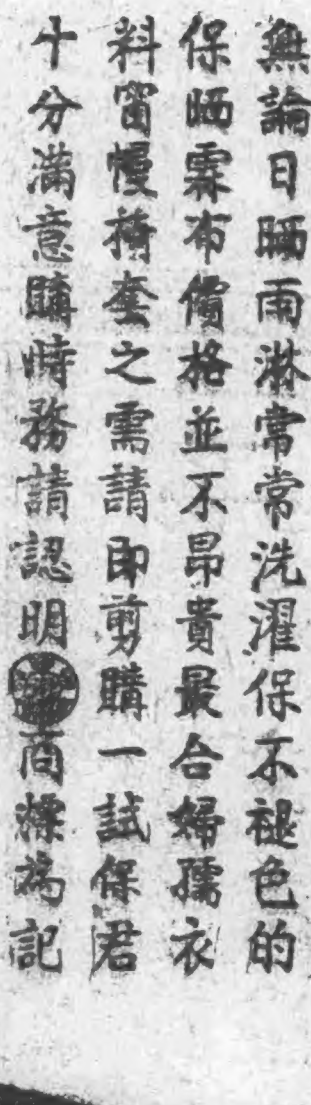 無論日晒雨淋常常洗濯保不褪色的
保晒霖布價格並不昂貴最合婦孺衣
料窗幔椅套之需請即剪購一試保君
十分滿意購時務請認明商標為記